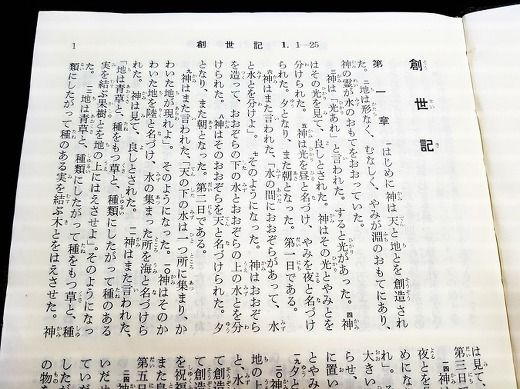 1　創世記　1. 1―25
創世記
第一章　一はじめに神は天と地とを創造され
た。二地は形なく、むなしく、やみが淵のおもてにあり、
神の霊が水のおもてをおおっていた。
三神は「光あれ」と言われた。すると光があった。四神
はその光を見て、良しとされた。神はその光とやみとを
分けられた。五神は光を昼と名づけ、やみを夜と名づけ
られた。夕となり、また朝となった。第一日である。
六神はまた言われた、「水の間におおぞらがあって、水
と水とを分けよ」。七そのようになった。神はおおぞら
を造って、おおぞらの下の水とおおぞらの上の水とを分
けられた。八神はそのおおぞらを天と名づけられた。夕
となり、また朝となった。第二日である。
九神はまた言われた、「天の下の水は一つ所に集まり、か
わいた地が現れよ」。そのようになった。一〇神はそのか
わいた地を陸と名づけ、水の集まった所を海と名づけら
れた。神は見て、良しとされた。一一神はまた言われた、
「地は青草と、種をもつ草と、種類にしたがって種のある
実を結ぶ果樹とを地の上にはえさせよ」。そのようになっ
た。一二地は青草と、種類にしたがって種をもつ草と、種
類にしたがって種のある実を結ぶ木とをはえさせた。神
は見て
第三日
一四神
夜とを
めにな
大きい
らせ、
に置い
とやみ
一九夕と
地の上
と、水
て創造
て創造
を祝福
また
第五日
二四神